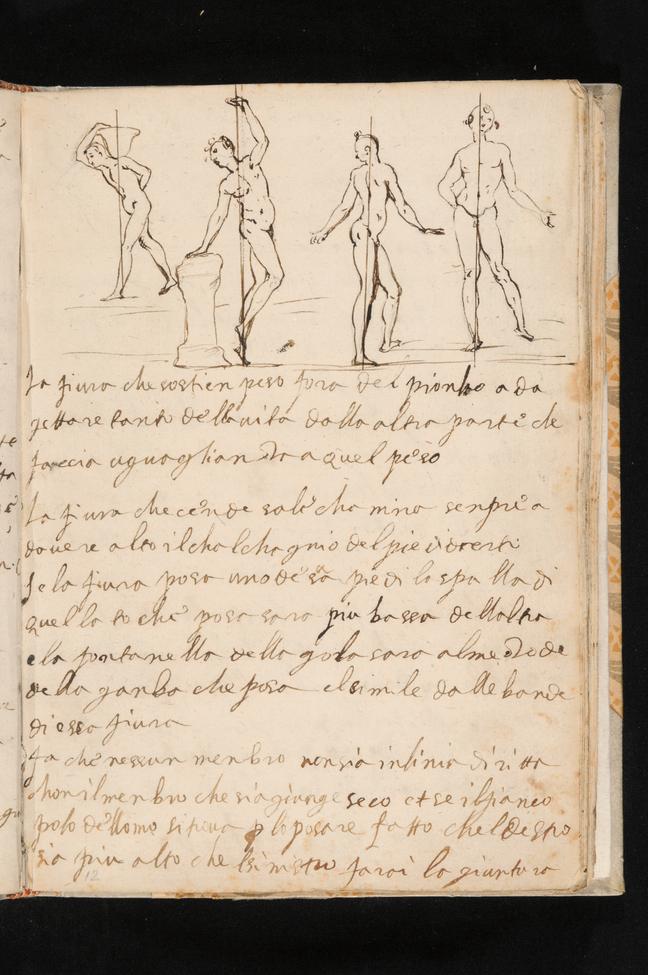 la fiura che sostien peso fora del pionbo a da
gettare tanto dellavita dalla altra parte che
faccia uguaglianza a quel peso
La fiura che cende sale chamina senpre a
davere alto il chalchagnio del pie didrerto
se la fiura posa uno de sa piedi la spalla di
quel lato che posa sara piu bassa dellaltra
e la fontanella della gola sara al mezo de
della ganba che posa el simile dalle bande
di essa fiura
fa che nessun menbro non sia in linia diritta
chon il menbro che si agiunge seco et se il fianco
polo dellomo si trova p lo posare fatto chel destro
sia piu alto che lsinistro farai la giuntura
12